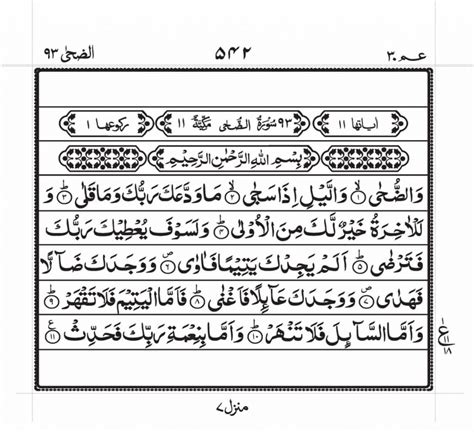 عم ۳۰ ۵۴۲ الضحٰی ۹۳
اٰیاتھا ۱۱ ۹۳ سُوْرَةُ الضُّحٰی مَکِّیَّةٌ ۱۱ رکوعھا ۱
بِسْمِ اللّٰهِ الرَّحْمٰنِ الرَّحِیْمِ
وَالضُّحٰی ۱ وَالَّیْلِ اِذَا سَجٰی ۲ مَا وَدَّعَكَ رَبُّكَ وَمَا قَلٰی ۳ وَ
لَلْاٰخِرَةُ خَیْرٌ لَّكَ مِنَ الْاُوْلٰی ۴ وَلَسَوْفَ یُعْطِیْكَ رَبُّكَ
فَتَرْضٰی ۵ اَلَمْ یَجِدْكَ یَتِیْمًا فَاٰوٰی ۶ وَوَجَدَكَ ضَآلًّا
فَهَدٰی ۷ وَوَجَدَكَ عَآئِلًا فَاَغْنٰی ۸ فَاَمَّا الْیَتِیْمَ فَلَا تَقْهَرْ ۹
وَاَمَّا السَّآئِلَ فَلَا تَنْهَرْ ۱۰ وَاَمَّا بِنِعْمَةِ رَبِّكَ فَحَدِّثْ ۱۱
ع
۱۱
۱۸
منزل ۷